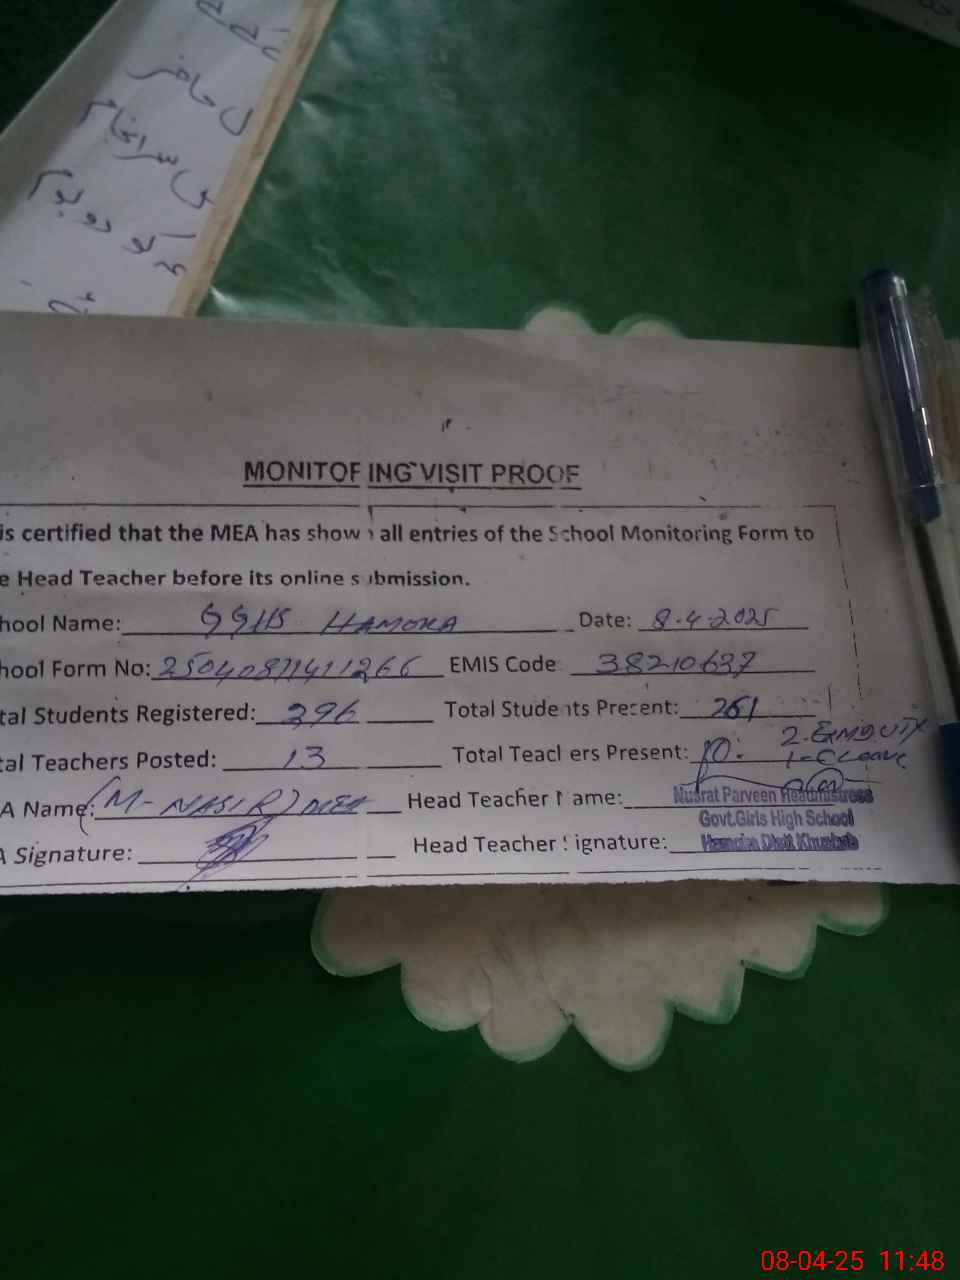 حاضر
سرانجام
MONITORING VISIT PROOF
is certified that the MEA has shown all entries of the School Monitoring Form to
e Head Teacher before its online submission.
hool Name: GGHS HAMOKA Date: 8-4-2025
hool Form No: 25040871411266 EMIS Code: 38210637
tal Students Registered: 396 Total Students Present: 261
tal Teachers Posted: 13 Total Teachers Present: 10. 2. EXM DUTY
1-C Leave
A Name: (M-NASIR) MEA Head Teacher Name: Nusrat Parveen Headmistress
Govt.Girls High School
A Signature: Head Teacher Signature: Hamoka Distt Khushab
08-04-25 11:48